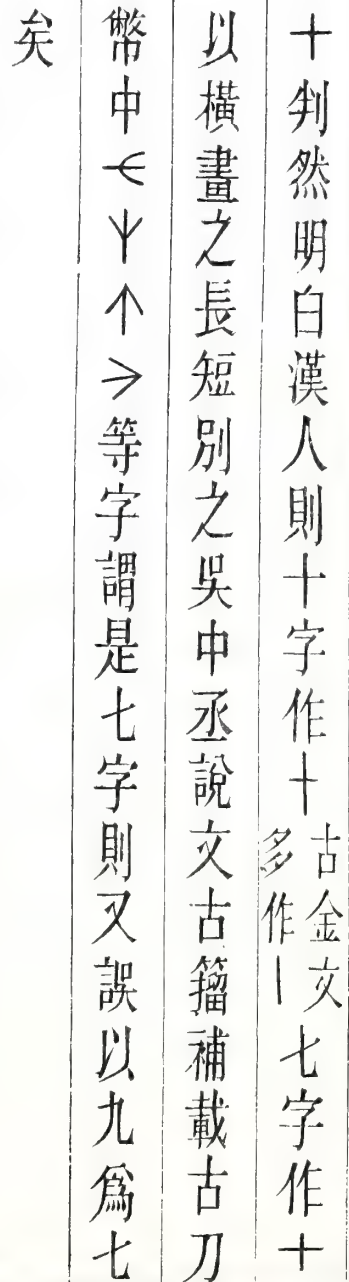 十判然明白漢人則十字作十古金文多作丨七字作十
以橫畫之長短別之吳中丞說文古籀補載古刀
幣中等字謂是七字則又誤以九爲七
矣